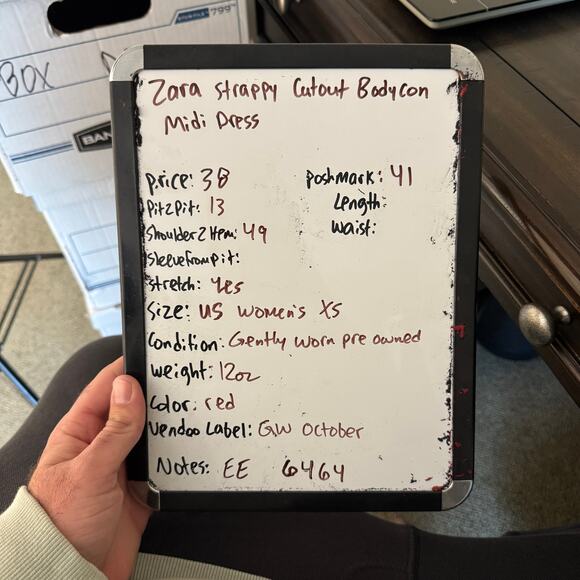 Zara strappy Cutout Bodycon
Midi Dress
price: 38
Poshmark: 41
Pit2Pit: 13
Length:
Shoulder2Hem: 49
Waist:
SleeveFromPit:
Stretch: Yes
Size: US Women's XS
Condition: Gently worn pre owned
Weight: 12oz
Color: red
Vendoo Label: GW October
Notes: EE 6464
BOX
BAN
799